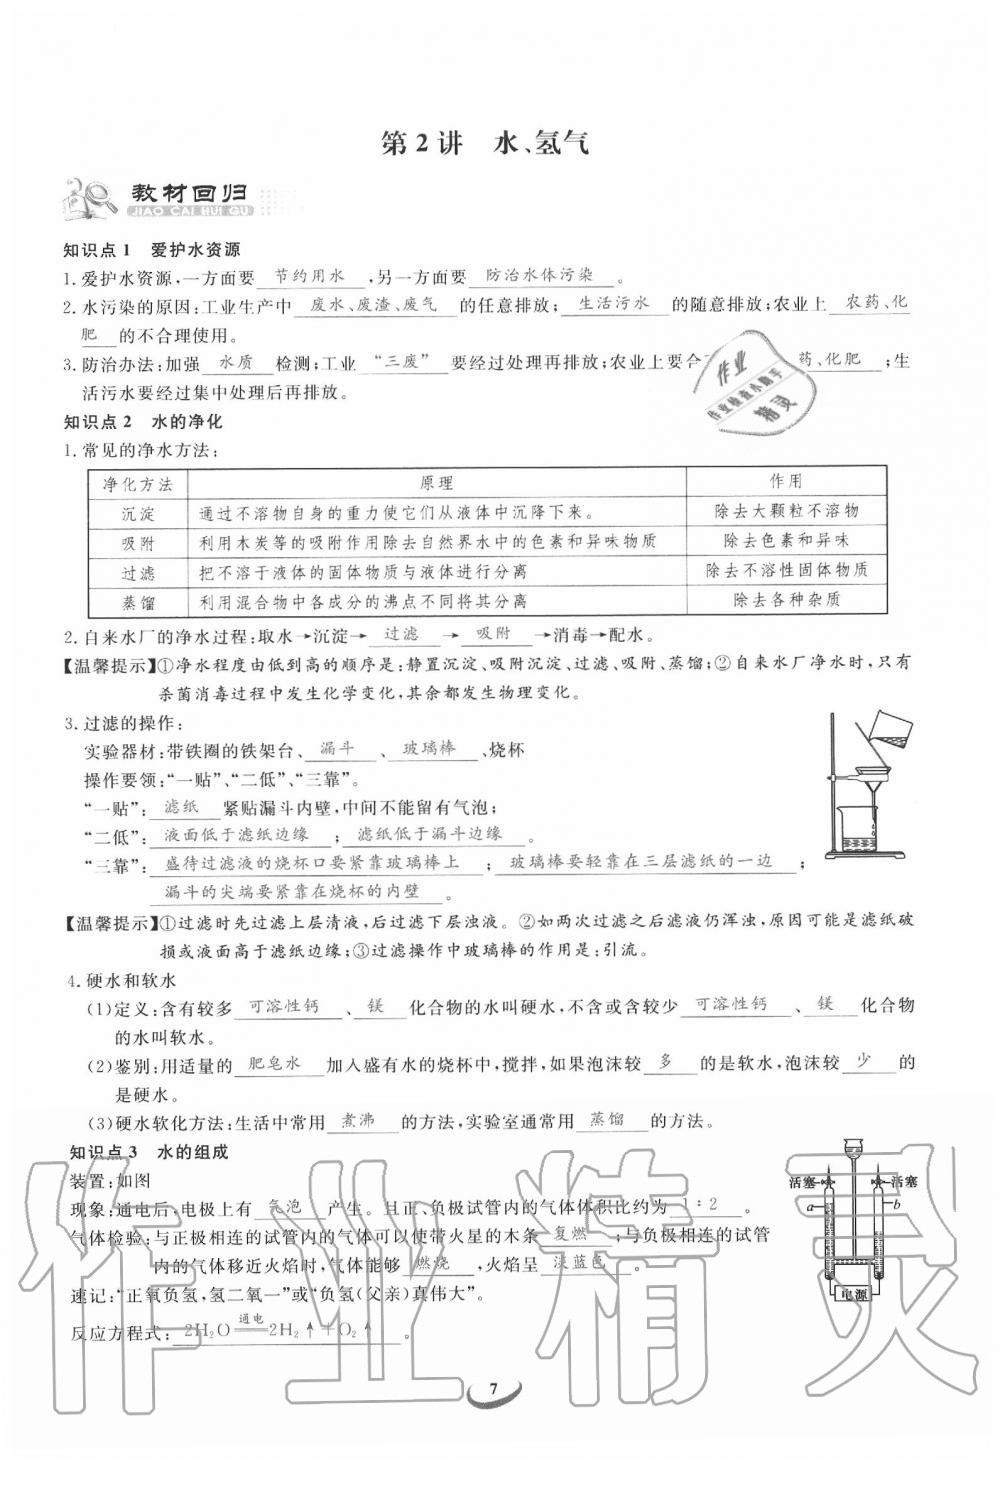 第2讲 水、氢气
教材回归
JIAO CAI HUI GU
知识点1 爱护水资源
1. 爱护水资源,一方面要 节约用水 ,另一方面要 防治水体污染 。
2. 水污染的原因:工业生产中 废水、废渣、废气 的任意排放; 生活污水 的随意排放;农业上 农药、化
肥 的不合理使用。
3. 防治办法:加强 水质 检测;工业 “三废” 要经过处理再排放;农业上要合 药、化肥 ;生
活污水要经过集中处理后再排放。
作业
作业检查小助手
精灵
知识点2 水的净化
1. 常见的净水方法:
净化方法 原理 作用
沉淀 通过不溶物自身的重力使它们从液体中沉降下来。 除去大颗粒不溶物
吸附 利用木炭等的吸附作用除去自然界水中的色素和异味物质 除去色素和异味
过滤 把不溶于液体的固体物质与液体进行分离 除去不溶性固体物质
蒸馏 利用混合物中各成分的沸点不同将其分离 除去各种杂质
2. 自来水厂的净水过程:取水→沉淀→ 过滤 → 吸附 →消毒→配水。
【温馨提示】①净水程度由低到高的顺序是:静置沉淀、吸附沉淀、过滤、吸附、蒸馏;②自来水厂净水时,只有
杀菌消毒过程中发生化学变化,其余都发生物理变化。
3. 过滤的操作:
实验器材:带铁圈的铁架台、 漏斗 、 玻璃棒 、烧杯
操作要领:“一贴”、“二低”、“三靠”。
“一贴”: 滤纸 紧贴漏斗内壁,中间不能留有气泡;
“二低”: 液面低于滤纸边缘 ; 滤纸低于漏斗边缘 。
“三靠”: 盛待过滤液的烧杯口要紧靠玻璃棒上 ; 玻璃棒要轻靠在三层滤纸的一边 ;
漏斗的尖端要紧靠在烧杯的内壁 。
【温馨提示】①过滤时先过滤上层清液,后过滤下层浊液。②如两次过滤之后滤液仍浑浊,原因可能是滤纸破
损或液面高于滤纸边缘;③过滤操作中玻璃棒的作用是:引流。
4. 硬水和软水
(1)定义:含有较多 可溶性钙 、 镁 化合物的水叫硬水,不含或含较少 可溶性钙 、 镁 化合物
的水叫软水。
(2)鉴别:用适量的 肥皂水 加入盛有水的烧杯中,搅拌,如果泡沫较 多 的是软水,泡沫较 少 的
是硬水。
(3)硬水软化方法:生活中常用 煮沸 的方法,实验室通常用 蒸馏 的方法。
知识点3 水的组成
装置:如图
现象:通电后,电极上有 气泡 产生。且正、负极试管内的气体体积比约为 1:2 。
气体检验:与正极相连的试管内的气体可以使带火星的木条 复燃 ;与负极相连的试管
内的气体移近火焰时,气体能够 燃烧 ,火焰呈 淡蓝色 。
速记:“正氧负氢,氢二氧一”或“负氢(父亲)真伟大”。
反应方程式: 2H₂O 通电 2H₂↑+O₂↑ 。
活塞 活塞
a b
电源
7
作业精灵